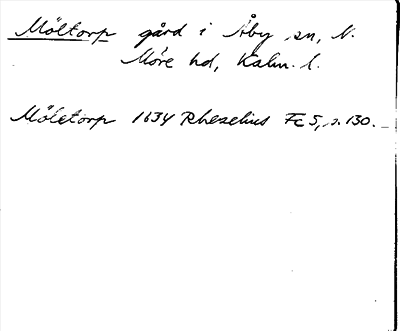 Möltorp gård i Åby sn, N.
Möre hd, Kalm. l.
Möletorp 1634 Rhezelius Fc 5, s. 130.